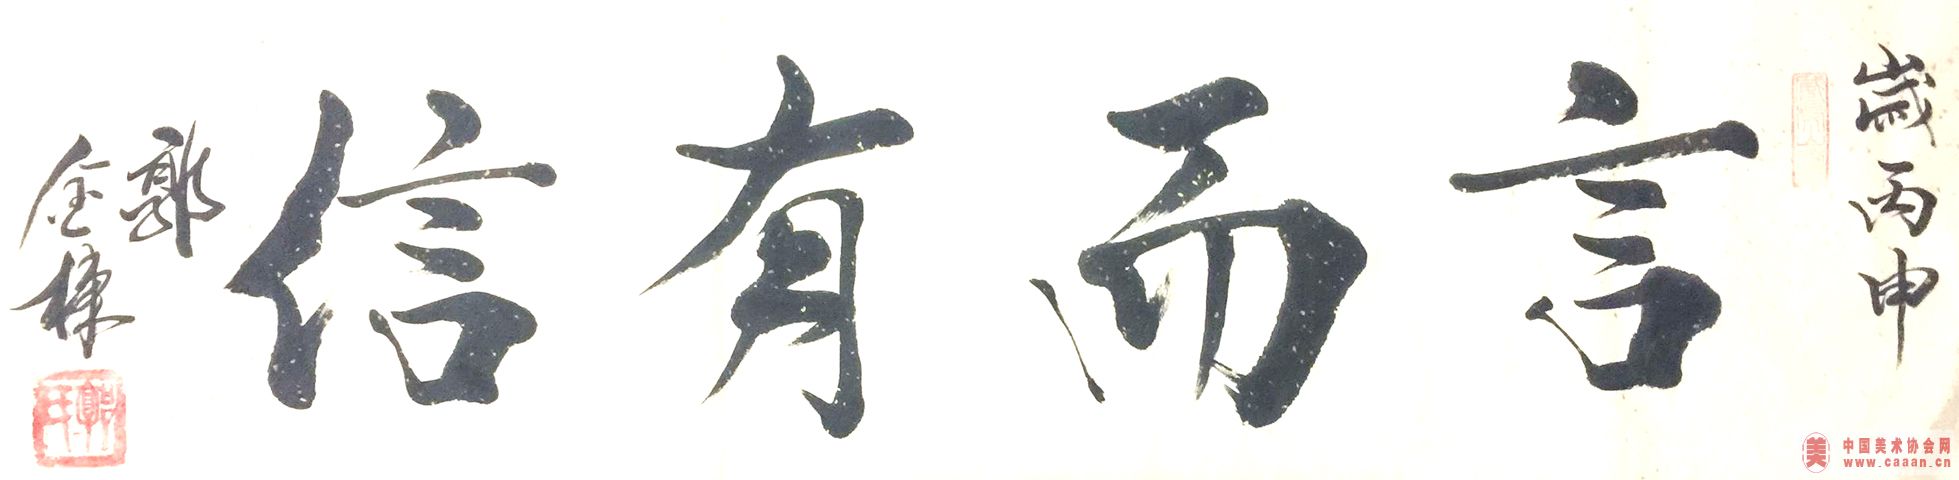 歲丙申
言而有信
郭金棟
中国美术协会网
www.caaan.cn